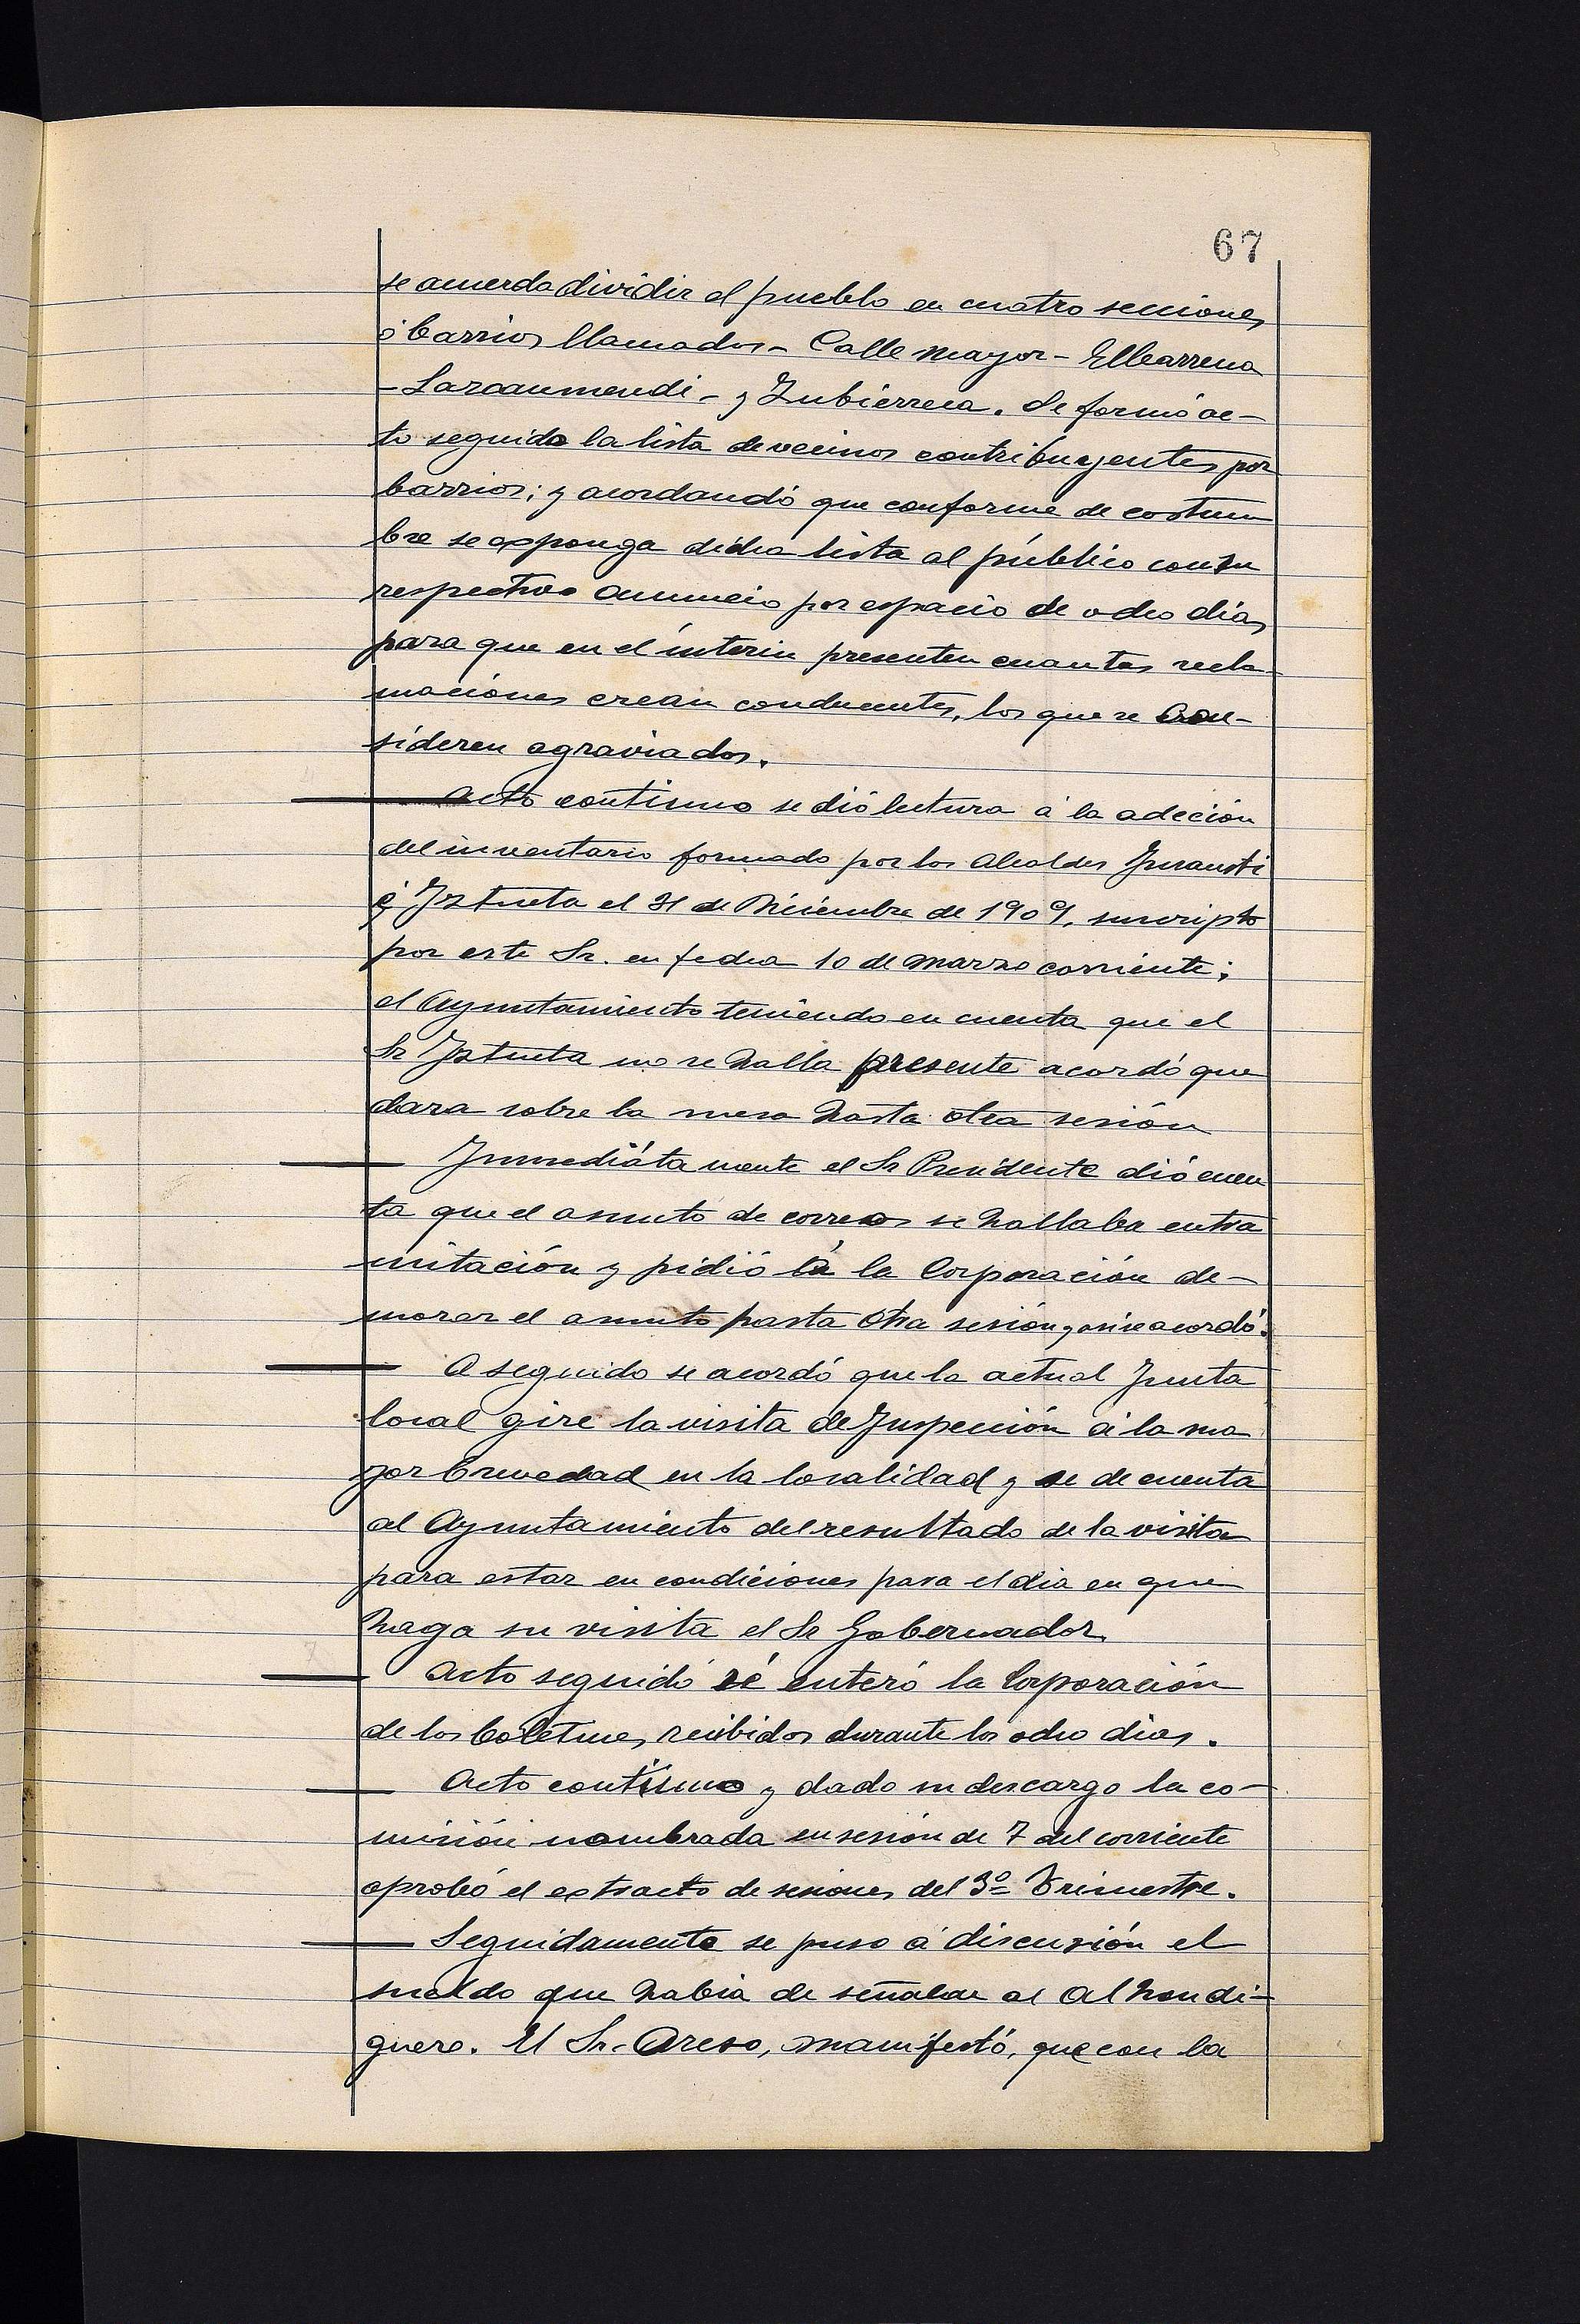 67
se acuerda dividir el pueblo en cuatro secciones
ó barrios llamados - Calle mayor - Elbarrena
- Larzaumendi - y Zubierreca. Se formó ac-
to seguido la lista de vecinos contribuyentes por
barrios; y acordandó que conforme de costum
bre se exponga dicha lista al público con su
respectivo anuncio por espacio de ocho dias
para que en el interin presenten cuantas recla-
maciones crean conducentes, los que se con-
sideren agraviados.
Acto continuo se dió lectura á la adeción
del inventario formado por los Alcaldes Yurausti
é Iztueta el 31 de Diciembre de 1909, suscripto
por este Sr. en fecha 10 de Marzo corriente;
el Ayuntamiento teniendo en cuenta que el
Sr Iztueta no se halla presente acordó que
dara sobre la mesa hasta otra sesión
Inmediáta mente el Sr Presidente dió cuen
ta que el asunto de correos se hallaba en tra
mitación y pidió á la Corporación de-
morar el asunto hasta otra sesión y asi se acordó.
A seguido se acordó que la actual Junta
local gire la visita de Inspección á la ma
yor brevedad en la localidad y se de cuenta
al Ayuntamiento del resultado de la visita
para estar en condiciones para el dia en que
haga su visita el Sr Gobernador.
Acto seguidó sé enteró la Corporación
de los boletines recibidos durante los ocho dias.
Acto contínuo y dado su descargo la co-
misión nombrada en sesión de 7 del corriente
aprobó el extracto de sesiones del 3º Trimestre.
Seguidamente se puso á discusión el
sueldo que habia de señalar al Alhondi-
guero. El Sr. Areso, manifestó, que con la